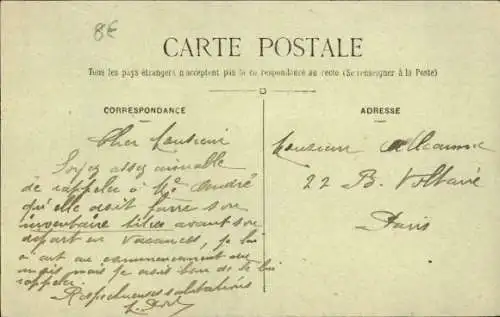 8€
CARTE POSTALE
Tous les pays étrangers n'acceptent pas la correspondance au recto (Se renseigner à la Poste)
CORRESPONDANCE
ADRESSE
Cher Monsieur
Soyez assez aimable
de rappeler à Me André
qu'elle doit faire son
inventaire avant son
départ en vacances, je lui
ai dit au commencement du
mois mais je crois bon de le lui
rappeler.
Respectueuses salutations
Monsieur
22 B. Voltaire
Paris